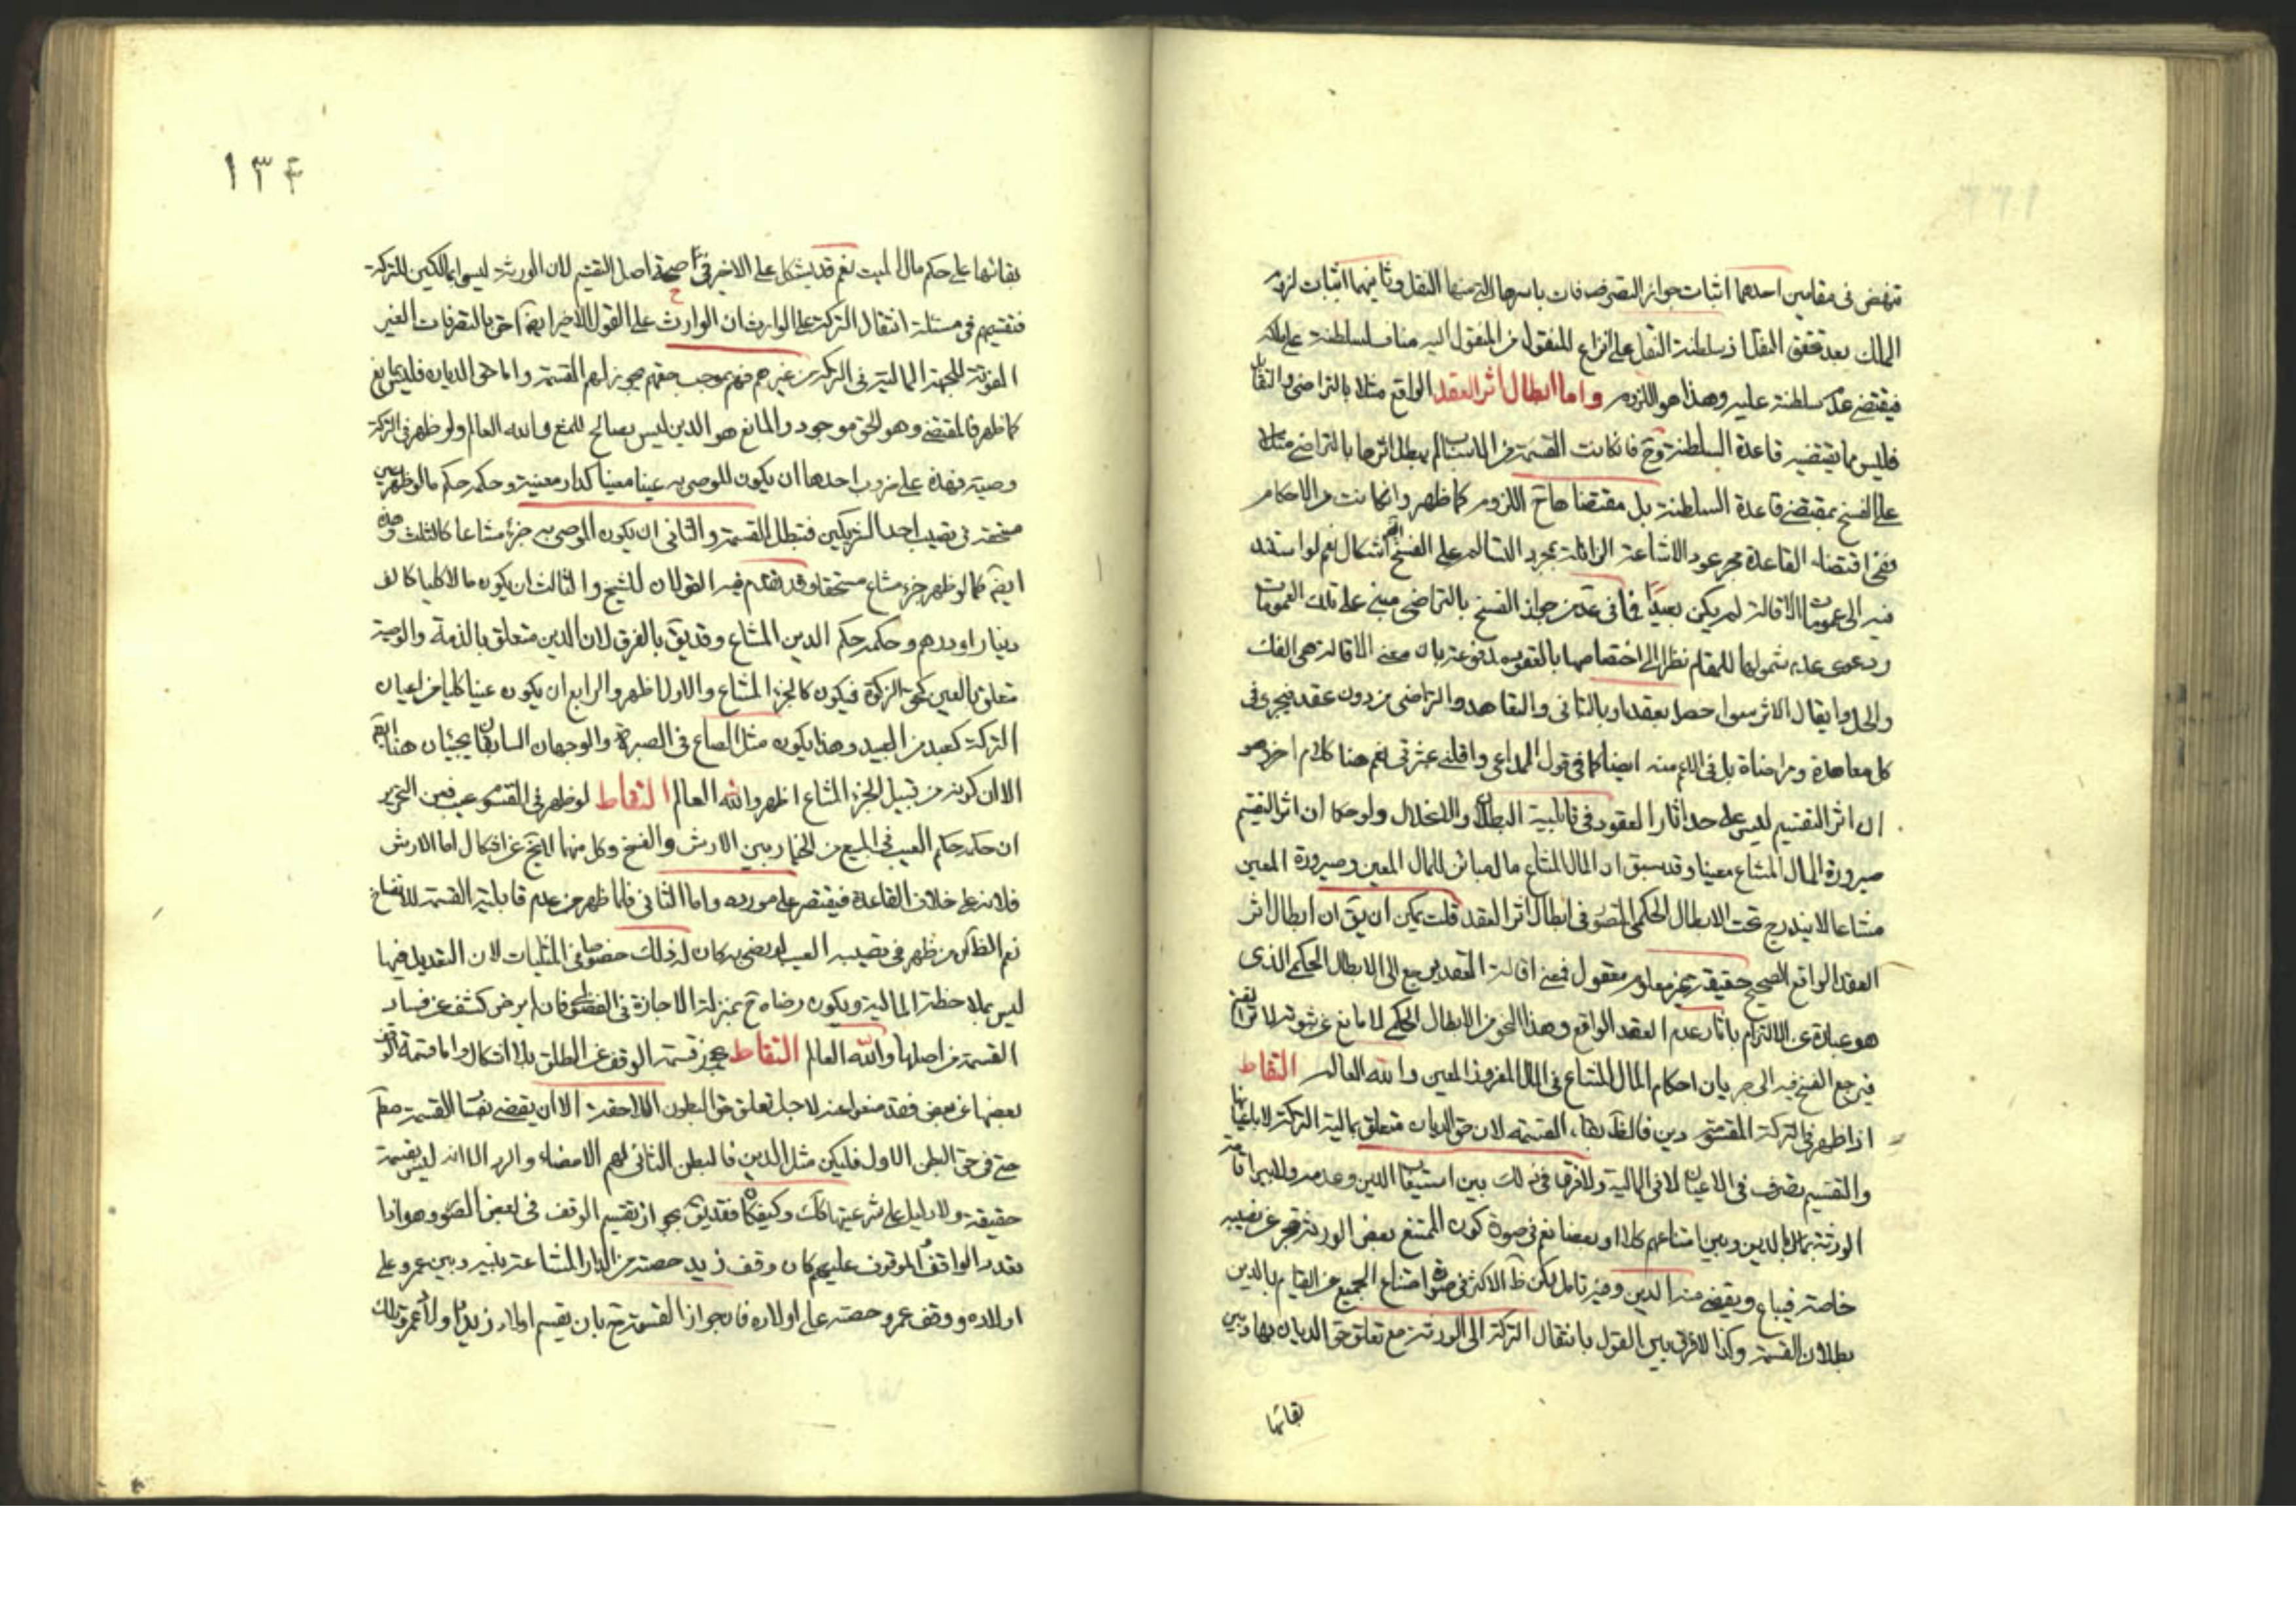 تنهض في مقامين احدهما اثبات جواز التصرفات باسرها التي منها النقل وثانيهما اثبات لزوم
الملك بعد تحقق النقل اذ سلطنة النقل على انزاع المنقول من المنقول اليه مناف لسلطنة على ماله
فيقتضي عدم سلطنة عليه وهذا هو اللزوم واما ابطال اثر العقد الواقع مثلا بالتراضي والتقايل
فليس مما يقتضيه قاعدة السلطنة وح فان كانت القسمة من الاسباب لم يبطل اثرها بالتراضي مثلا
على الفسخ بمقتضى قاعدة السلطنة بل مقتضاها ح اللزوم كما ظهر وان كانت من الاحكام
ففي اقتضاء القاعدة مجرد عود الاشاعة الزائلة بمجرد التسالم على الفسخ اشكال نعم لو استند
فيه الى عمومات الاقالة لم يكن بعيدا فما في عد من جواز الفسخ بالتراضي مبني على تلك العمومات
ودعوى عدم شمولها للمقام نظرا الى اختصاصها بالعقود مدفوعة بان معنى الاقالة هي الفك
والحل وابقال الاثر سواء حصل بعقد او بالتاني والتقاهد والتراضي من دون عقد فيجري في
كل معاهدة ومراضاة بل في الاعم منه ايضا كما في قول الداعي واقلني عثرتي نعم هنا كلام اخر وهو
ان اثر التقسيم ليس على حد اثار العقود في قابلية البطلان والانحلال ولو حكما لان اثر التقسيم
صيرورة المال المشاع معينا وقد سبق ان المال المشاع مال مباين للمال المعين وصيرورة المعين
مشاعا لا يندرج تحت الابطال الحكمي المتصور في ابطال اثر العقد قلت يمكن ان يق ان ابطال اثر
العقد الواقع الصحيح حقيقة غير معلوم معقول فمعنى اقالة العقد يرجع الى الابطال الحكمي الذي
هو عبارة عن الالتزام باثار عدم العقد الواقع وهذا النحو من الابطال الحكمي لا مانع عن ثبوته لاثر القسمة
فيرجع الفسخ فيه الى جريان احكام المال المشاع في المال المفروز المعين والله العالم التقاط
اذا ظهر في التركة المقسومة دين فالظ بقاء القسمة لان حق الديان متعلق بمالية التركة لا باعيانها
والتقسيم تصرف في الاعيان لا في المالية ولا فرق في ذلك بين استيفاء الدين وعدمه ولا بين اقامة
الورثة بمال الدين وبين امتناعهم كلا او بعضا نعم في صورة كون الممتنع بعض الورثة تخرج عن نصيبه
خاصة فيباع ويقضى منه الدين وفيه تامل لكن ظ الاكثر في صورة امتناع الجميع عن القيام بالدين
بطلان القسمة وكذا لا فرق بين القول بانتقال التركة الى الورثة مع تعلق حق الديان بها وبين
بقائها
١٣٤
بقائها على حكم مال الميت نعم قد يشكل على الاخير في صحة اصل التقسيم لان الورثة ليسوا بمالكين للتركة
فتقسيمهم في مسئلة انتقال التركة على الوارث ان الوارث على القول الاخير ايضا احق بالتصرفات الغير
المفوتة للجهة المالية في التركة من غيرهم فهم بموجب حقهم يجوز لهم القسمة واما حق الديان فليس بمانع
كما ظهر فالمقتضي وهو الحق موجود والمانع هو الدين ليس بصالح للمنع والله العالم ولو ظهر في التركة
وصية فهذه على ضروب احدها ان يكون للموصى به عينا معينا كدار معينة وحكمه حكم ما لو ظهر عين
مستحقة في نصيب احد الشريكين فتبطل القسمة والثاني ان يكون الموصى به جزءا مشاعا كالثلث وهذه
ايضا كما لو ظهر جزء مشاع مستحقا وقد تقدم فيه القولان للشيخ والثالث ان يكون مالا كليا كالف
دينار او درهم وحكمه حكم الدين المشاع وقد يق بالفرق لان الدين متعلق بالذمة والوصية
متعلق بالعين كحق الزكوة فيكون كالجزء المشاع والاول اظهر والرابع ان يكون عينا كليا من اعيان
التركة كعبد من العبيد وهذا يكون مثل الصاع في الصبرة والوجهان السابقان يجيئان هنا ايضا
الا ان كونه من قبيل الجزء المشاع اظهر والله العالم التقاط لو ظهر في المقسوم عيب فعن التحرير
ان حكمه حكم العيب في المبيع من الخيار بين الارش والفسخ وكل منهما لا يخ عن اشكال اما الارش
فلانه على خلاف القاعدة فيقتصر على مورده واما الثاني فلما ظهر من عدم قابلية القسمة للانفساخ
نعم الظ ان من ظهر في نصيبه العيب لو رضي به كان له ذلك خصوصا في المثليات لان التعديل فيها
ليس بملاحظة المالية ويكون رضاه ح بمنزلة الاجازة في الفضولي فان لم يرض كشف عن فساد
القسمة من اصلها والله العالم التقاط يجوز قسمة الوقف عن الطلق بلا اشكال واما قسمة الوقف
بعضها عن بعض فقد منعوا عنه لاجل تعلق حق البطون اللاحقة الا ان يقتضي نفس القسمة صحة
حتى في حق البطن الاول فليكن مثل الدين فالبطن الثاني لهم الامضاء والرد الا انه ليس بقسمة
حقيقة ولا دليل على شرعيتها كك وكيف كان فقد يق بجواز تقسيم الوقف في بعض الصور وهو اذا
تعدد الواقف والموقوف عليهم كان وقف زيد حصته من الدار المشاعة بينه وبين عمرو على
اولاده ووقف عمرو حصته على اولاده فان جواز القسمة ح بان يقسم اولاد زيد واولاد عمرو تلك